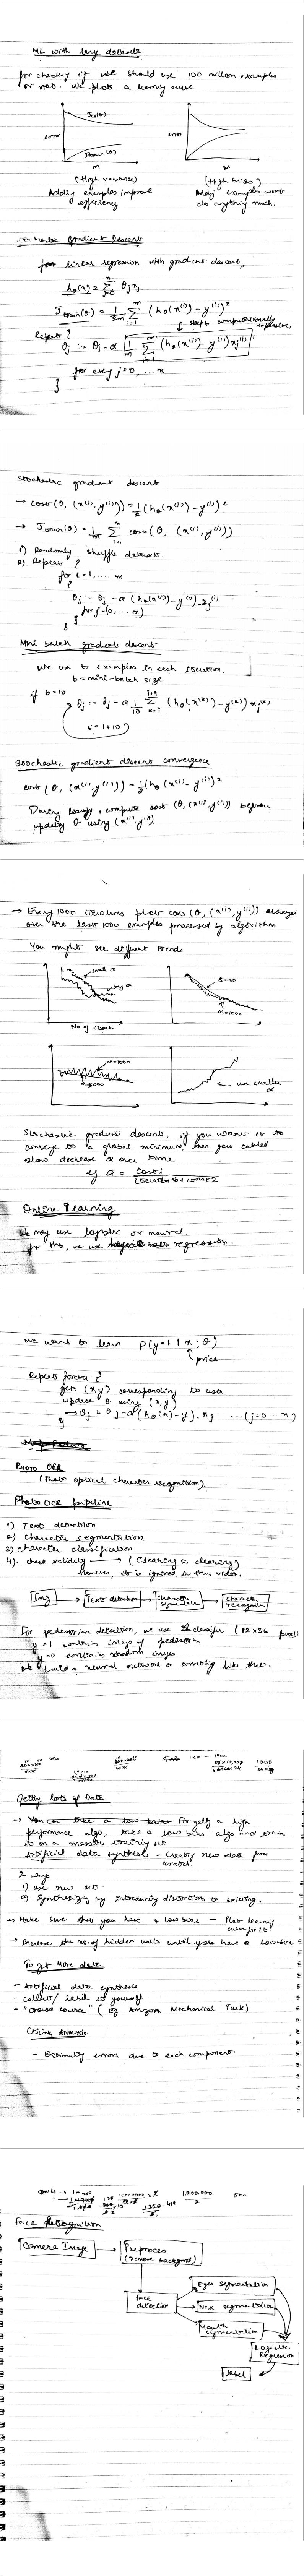 ML with large datasets
for checking if we should use 100 million examples
or not. We plot a learning curve
error
Jcv(θ)
Jtrain(θ)
m
error
m
(High variance)
Adding examples improve
efficiency
(High bias)
Adding examples wont
do anything much.
Gradient Descent
for linear regression with gradient descent,
hθ(x) = Σ θj xj
Jtrain(θ) = 1/2m Σ (hθ(x(i)) - y(i))²
Repeat {
θj := θj - α 1/m Σ (hθ(x(i)) - y(i)) xj(i)
for every j = 0, ... n
}
Stochastic gradient descent
→ cost(θ, (x(i), y(i))) = 1/2 (hθ(x(i)) - y(i))²
→ Jtrain(θ) = 1/m Σ cost(θ, (x(i), y(i)))
1) Randomly shuffle datasets.
2) Repeat {
for i = 1, .... m
{
θj := θj - α (hθ(x(i)) - y(i)) . xj(i)
for j = (0, ... n)
}
}
Mini batch gradient descent
We use b examples in each iteration.
b = mini-batch size
if b = 10
θj := θj - α 1/10 Σ (hθ(x(k)) - y(k)) xj(k)
i = i + 10
Stochastic gradient descent convergence
cost(θ, (x(i), y(i))) = 1/2 (hθ(x(i)) - y(i))²
During learning, compute cost (θ, (x(i), y(i))) before
updating θ using (x(i), y(i))
→ Every 1000 iterations plot cost (θ, (x(i), y(i))) averaged
over the last 1000 examples processed by algorithm
You might see different trends
small α
big α
No of iteration
5000
m=1000
m=1000
m=5000
use smaller
α
Stochastic gradient descent, if you want it to
converge to a global minimum, then you
slow decrease α over time.
eg α = const1
iteration no + const2
Online Learning
We may use logistic or neural.
for this, we use regression.
We want to learn p(y=1 | x; θ)
price
Repeat forever {
get (x,y) corresponding to user
update θ using (x,y)
→ θj = θj - α (hθ(x) - y) . xj ... (j=0 ... n)
}
PHOTO OCR
(Photo optical character recognition).
Photo OCR pipeline
1) Text detection
2) Character segmentation
3) Character classification
4). check validity → (C1earing = clearing)
However, it is ignored in this video.
Img → Text detection → Character segmentation → Character recognition
For pedestrian detection, we use classifier (82 x 36 pixel)
y=1 contains images of pedestrian
y=0 contains random images
We build a neural network or something like this.
Getting lots of Data
→ For getting a high
performance algo, take a low bias algo and train
it on a massive training set.
Artificial data synthesis - creating new data from
scratch.
2 ways
1) use new set.
2) Synthesizing by introducing distortions to existing.
→ Make sure that you have a low bias. - Plot learning
curve for it
→ Increase the no. of hidden units until you have a low-bias
To get More data
- Artificial data synthesis
- collect / label it yourself
- "crowd source" (eg Amazon Mechanical Turk)
CEILING ANALYSIS
- Estimating errors due to each component.
Face Recognition
Camera Image
Preprocess
(remove background)
Face
detection
Eyes segmentation
Nose segmentation
Mouth
segmentation
Logistic
Regression
label